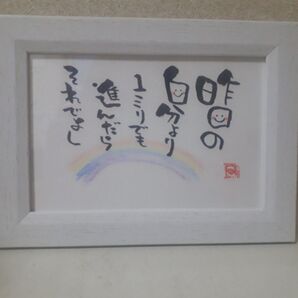 昨日の
自分より
1ミリでも
進んだら
それでよし